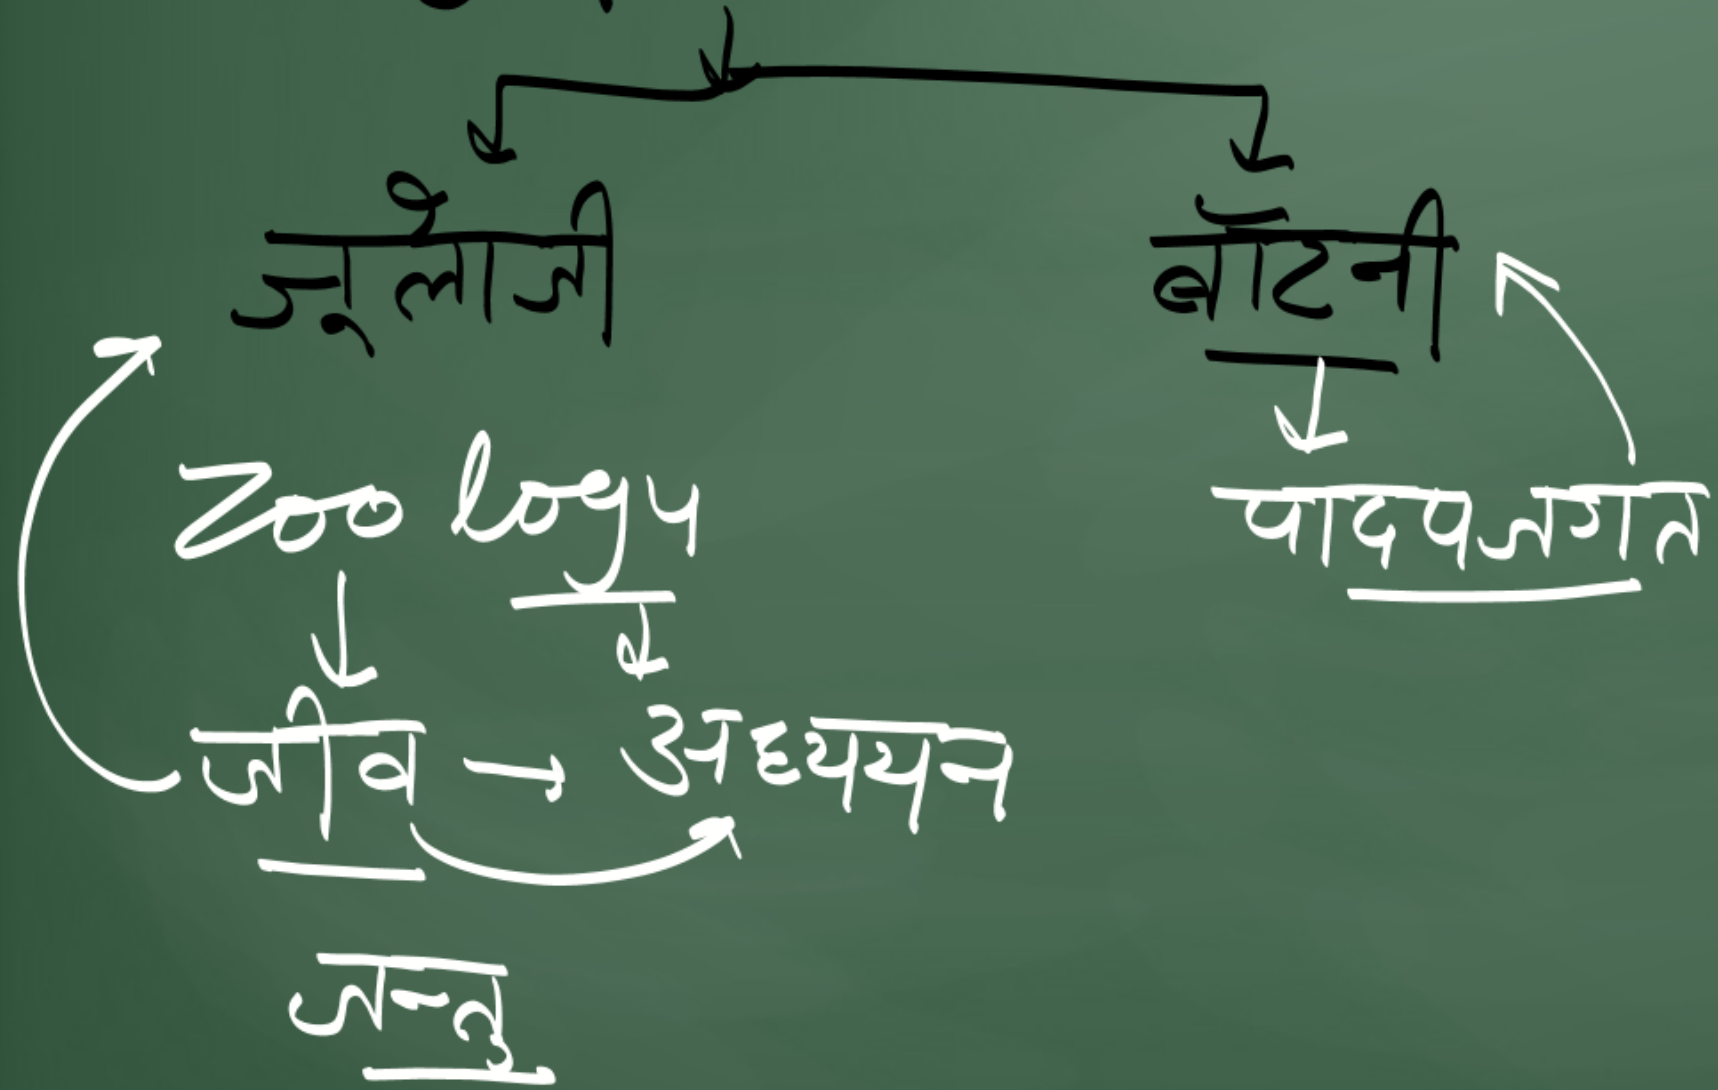 जूलोजी बॉटनी
Zoology पादपजगत
जीव → अध्ययन
जन्तु